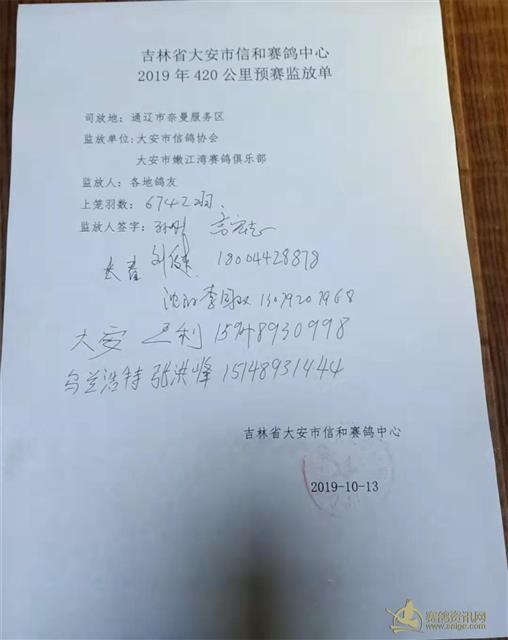 吉林省大安市信和赛鸽中心
2019年420公里预赛监放单
司放地：通辽市奈曼服务区
监放单位：大安市信鸽协会
大安市嫩江湾赛鸽俱乐部
监放人：各地鸽友
上笼羽数：6742羽
监放人签字：
长春 刘 18004428878
李 13079207968
大安 利 15948930998
乌兰浩特 张洪峰 15148931444
吉林省大安市信和赛鸽中心
2019-10-13
赛鸽资讯网
www.saige.com